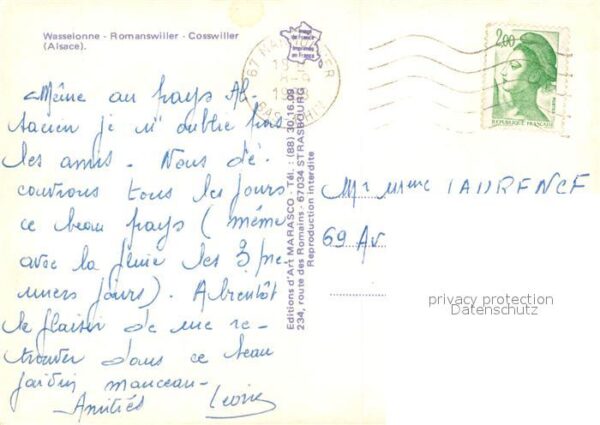 Wasselonne - Romanswiller - Cosswiller
(Alsace).
Image
de France
Imprimée
en France
67
BAS RHIN
2,00
REPUBLIQUE FRANÇAISE
Même au pays Al-
sacien je n'oublie pas
les amis. Nous dé-
couvrons tous les jours
ce beau pays (même
avec la pluie les 3 pre
miers jours). A bientôt
le plaisir de me re-
trouver dans ce beau
jardin manceau -
Amitiés
Editions d'Art MARASCO - Tél. : (88) 30.16.09
234, route des Romains - 67034 STRASBOURG
Reproduction interdite
Mr Mme LAURENCE
69 Av
privacy protection
Datenschutz